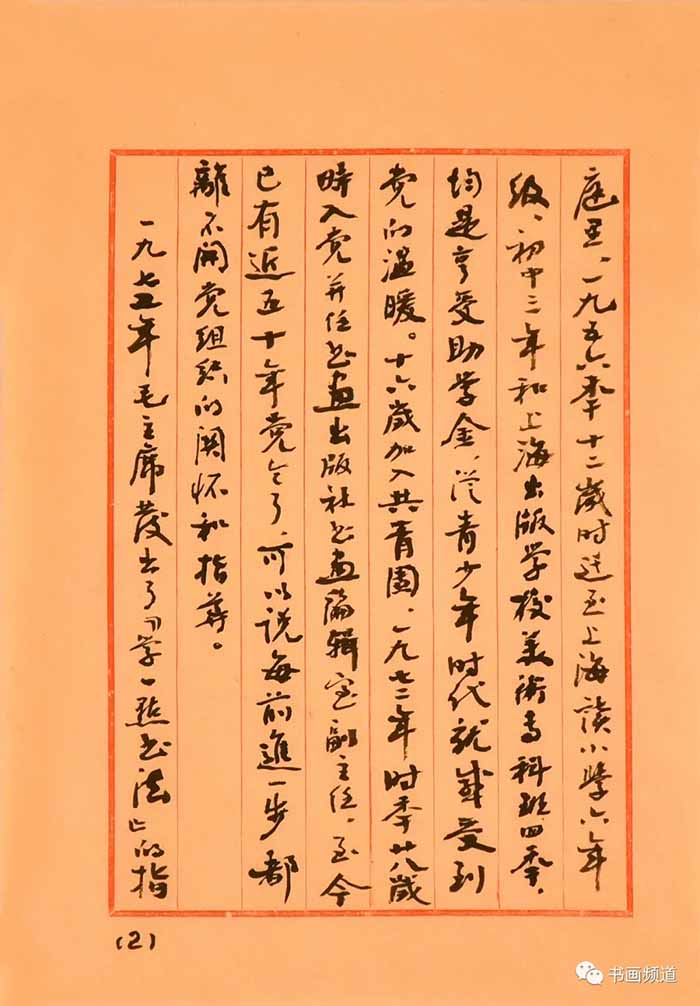 庭里、一九五六年十二歲时迁至上海讀小學六年
级、初中三年和上海出版学校美術专科班四年,
均是享受助学金、从青少年时代就感受到
党的温暖。十六歲加入共青團、一九七二年时年廿八歲
時入党并任书画出版社书画编辑室副主任、至今
已有近五十年党令了,可以说每前進一步都
離不開党组织的関怀和指導。
一九七五年毛主席發出了「学一點书法」的指
(2)
书画频道